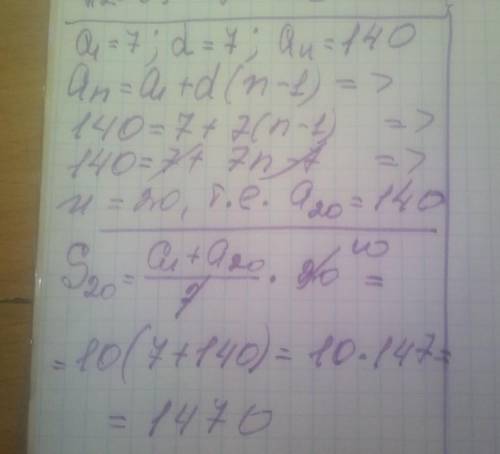 a₁ = 7 ; d = 7 ; aₙ = 140
aₙ = a₁ + d(n-1) =>
140 = 7 + 7(n-1) =>
140 = 7 + 7n - 7 =>
n = 20, т.е. a₂₀ = 140
S₂₀ = (a₁ + a₂₀)/2 · 20 10 =
= 10(7+140) = 10·147 =
= 1470